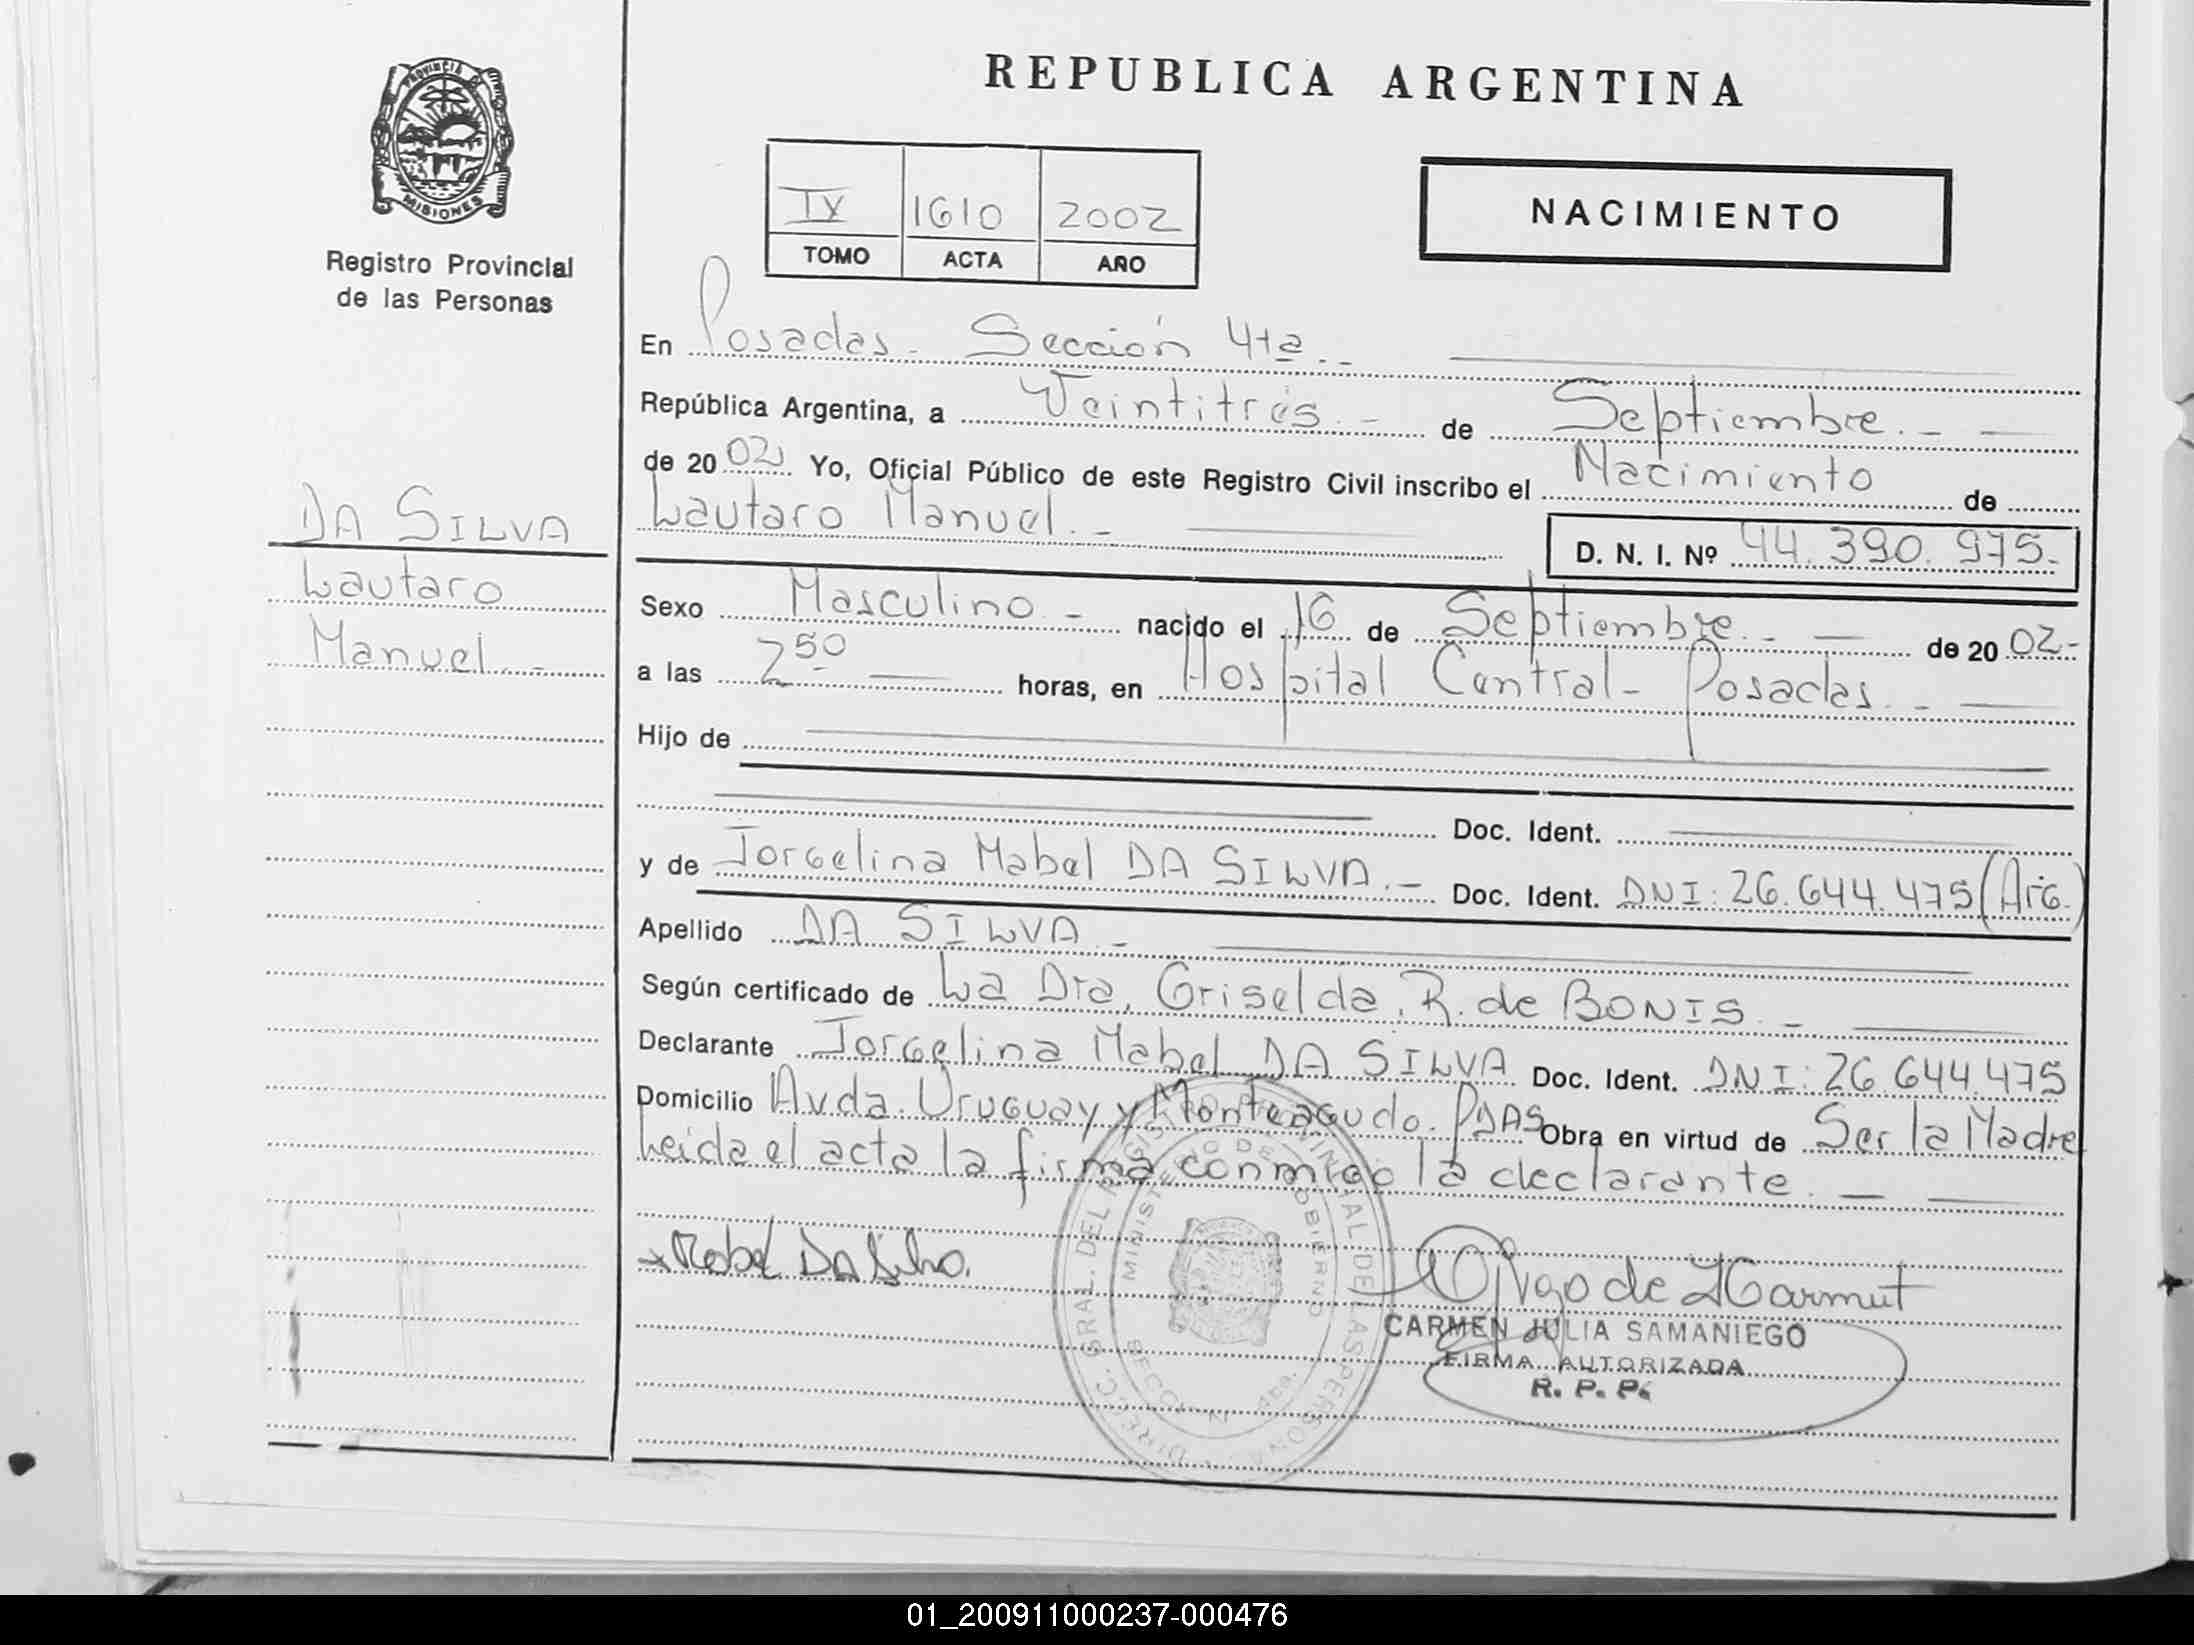 PROVINCIA DE
MISIONES
Registro Provincial
de las Personas
REPUBLICA ARGENTINA
IV 1610 2002
TOMO ACTA AÑO
NACIMIENTO
En Posadas - Sección 4ta. -
República Argentina, a Veintitrés. - de Septiembre. -
de 20 02 Yo, Oficial Público de este Registro Civil inscribo el Nacimiento de
Lautaro Manuel. -
D. N. I. Nº 44.390.975.
DA SILVA
Lautaro
Manuel. -
Sexo Masculino - nacido el 16 de Septiembre. - de 20 02-
a las 2 50 horas, en Hospital Central - Posadas. -
Hijo de
Doc. Ident.
y de Jorgelina Mabel DA SILVA. - Doc. Ident. DNI: 26.644.475 (Arg.)
Apellido DA SILVA -
Según certificado de La Dra. Griselda. R. de BONIS -
Declarante Jorgelina Mabel DA SILVA Doc. Ident. DNI: 26.644.475
Domicilio Avda. Uruguay y Monteagudo. PDAS Obra en virtud de Ser la Madre
Leida el acta la firma conmigo la declarante. -
DIRECC. GRAL. DEL REGISTRO PROVINCIAL DE LAS PERSONAS
MINISTERIO DE GOBIERNO
Mabel Da Silva.
CARMEN JULIA SAMANIEGO
FIRMA AUTORIZADA
R. P. P.
01_200911000237-000476